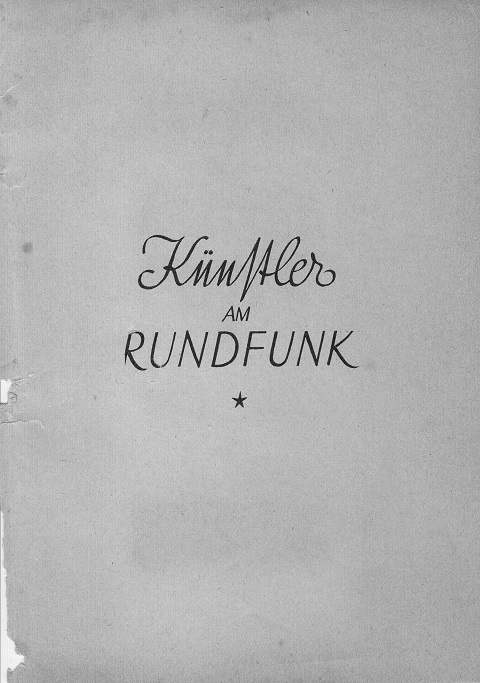 Künstler
AM
RUNDFUNK